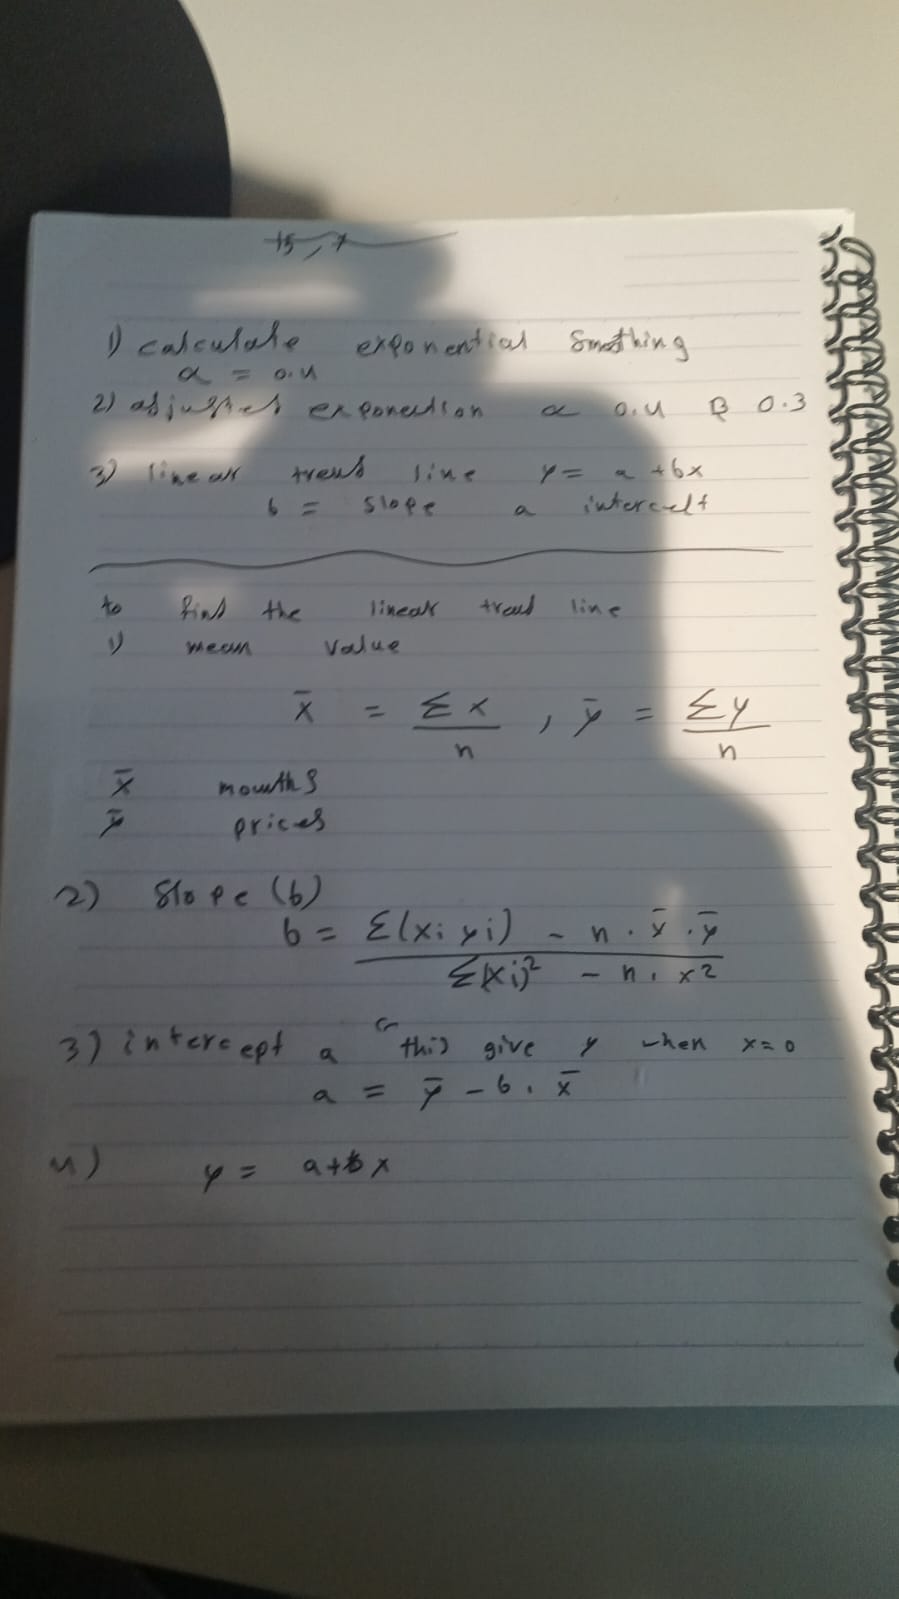 15, 7
1) calculate exponential Smothing
α = 0.4
2) adjusted exponention α 0.4 B 0.3
3) linear trend line y = a + bx
b = slope a intercelt
to find the linear trend line
1) mean value
x̄ = Σx / n , ȳ = Σy / n
x̄ mounths
ȳ prices
2) Slope (b)
b = Σ(xi yi) - n . x̄ . ȳ / Σ(xi)² - n . x²
3) intercept a this give y when x = 0
a = ȳ - b . x̄
4) y = a + b x